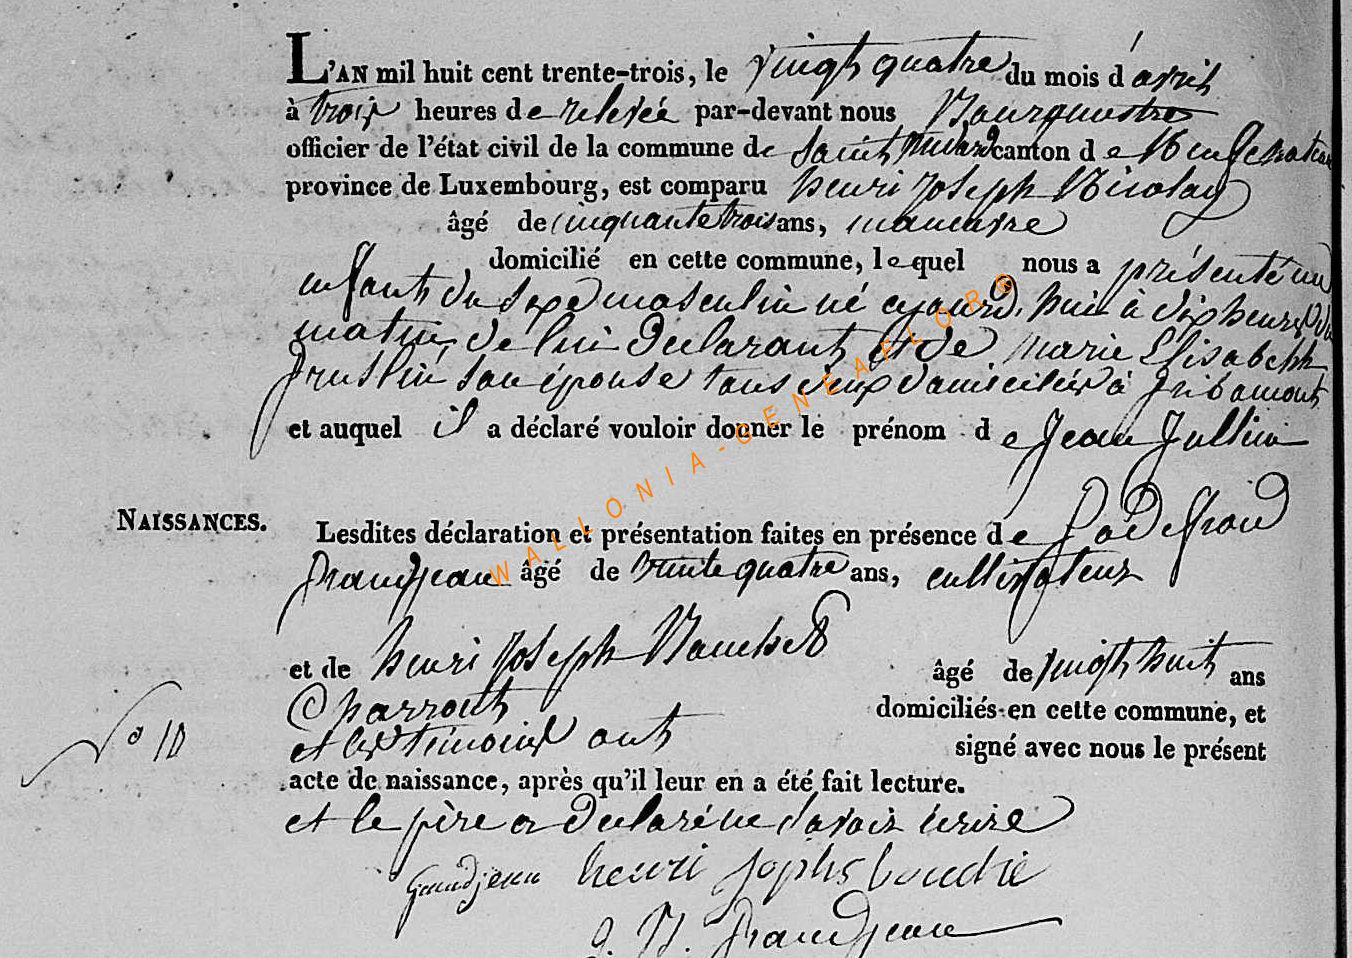 L'AN mil huit cent trente-trois, le vingt quatre du mois d'avril
à trois heures de relevée par-devant nous Bourgmestre
officier de l'état civil de la commune de Saint Médard canton de Neufchateau
province de Luxembourg, est comparu henri joseph Nicolay
âgé de cinquante trois ans, manœuvre
domicilié en cette commune, lequel nous a présenté un
enfant du sexe masculin né cejourd'hui à dix heures du
matin, de lui déclarant et de marie Elisabeth
son épouse tous deux domiciliés à gribomont
et auquel il a déclaré vouloir donner le prénom de jean jullien
NAISSANCES.
Lesdites déclaration et présentation faites en présence de godefroid
grandjean âgé de trente quatre ans, cultivateur
et de henri joseph âgé de vingt huit ans
Charront domiciliés en cette commune, et
et les témoins ont signé avec nous le présent
N° 10
acte de naissance, après qu'il leur en a été fait lecture.
et le père a déclaré ne savoir écrire
grandjean henri josphs
J. N. grandjean
WALLONIA-GENEAFLOR®